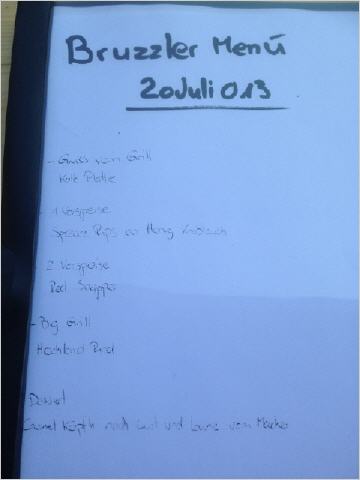 Bruzzler Menü
20 Juli 013
- Gruß vom Grill
Kalte Platte
- 1 Vorspeise
Spare Rips an Honig Knoblauch
- 2 Vorspeise
Red Snapper
- Big Grill
Hochland Rind
Dessert
Caramel Köpfli nach Lust und Laune vom Macher